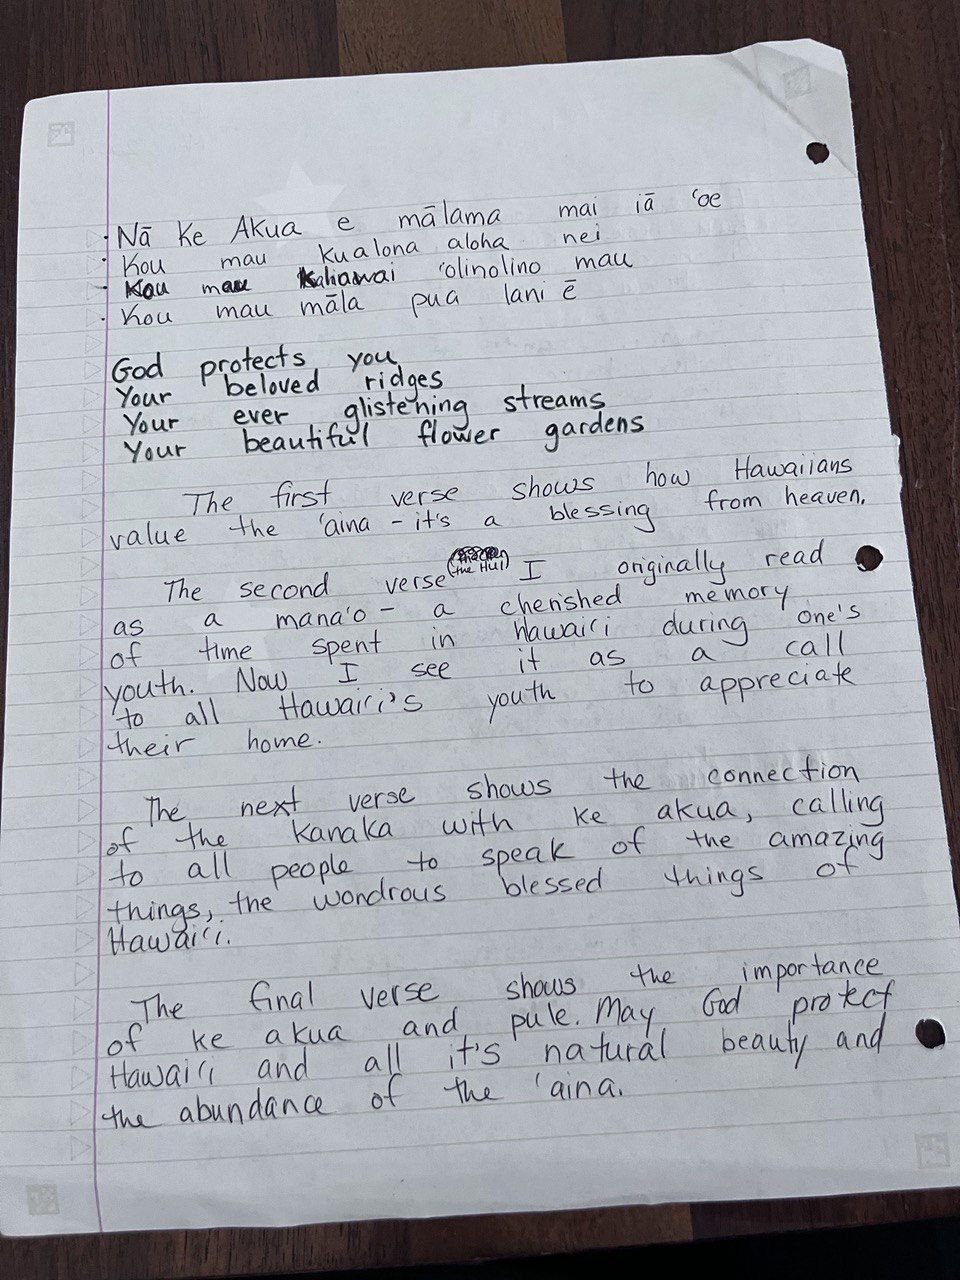 · Nā Ke Akua e mālama mai iā ʻoe
· Kou mau kualona aloha nei
· Kou mau Kahawai ʻolinolino mau
· Kou mau māla pua lani ē
God protects you
Your beloved ridges
Your ever glistening streams
Your beautiful flower gardens
The first verse shows how Hawaiians
value the ʻaina - it's a blessing from heaven.
The second verse (the Hui) I originally read
as a manaʻo - a cherished memory
of time spent in Hawaiʻi during one's
youth. Now I see it as a call
to all Hawaiʻi's youth to appreciate
their home.
The next verse shows the connection
of the kanaka with ke akua, calling
to all people to speak of the amazing
things, the wondrous blessed things of
Hawaiʻi.
The final verse shows the importance
of ke akua and pule. May God protect
Hawaiʻi and all it's natural beauty and
the abundance of the ʻaina.